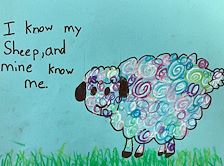 I know my
Sheep,and
mine know
me.